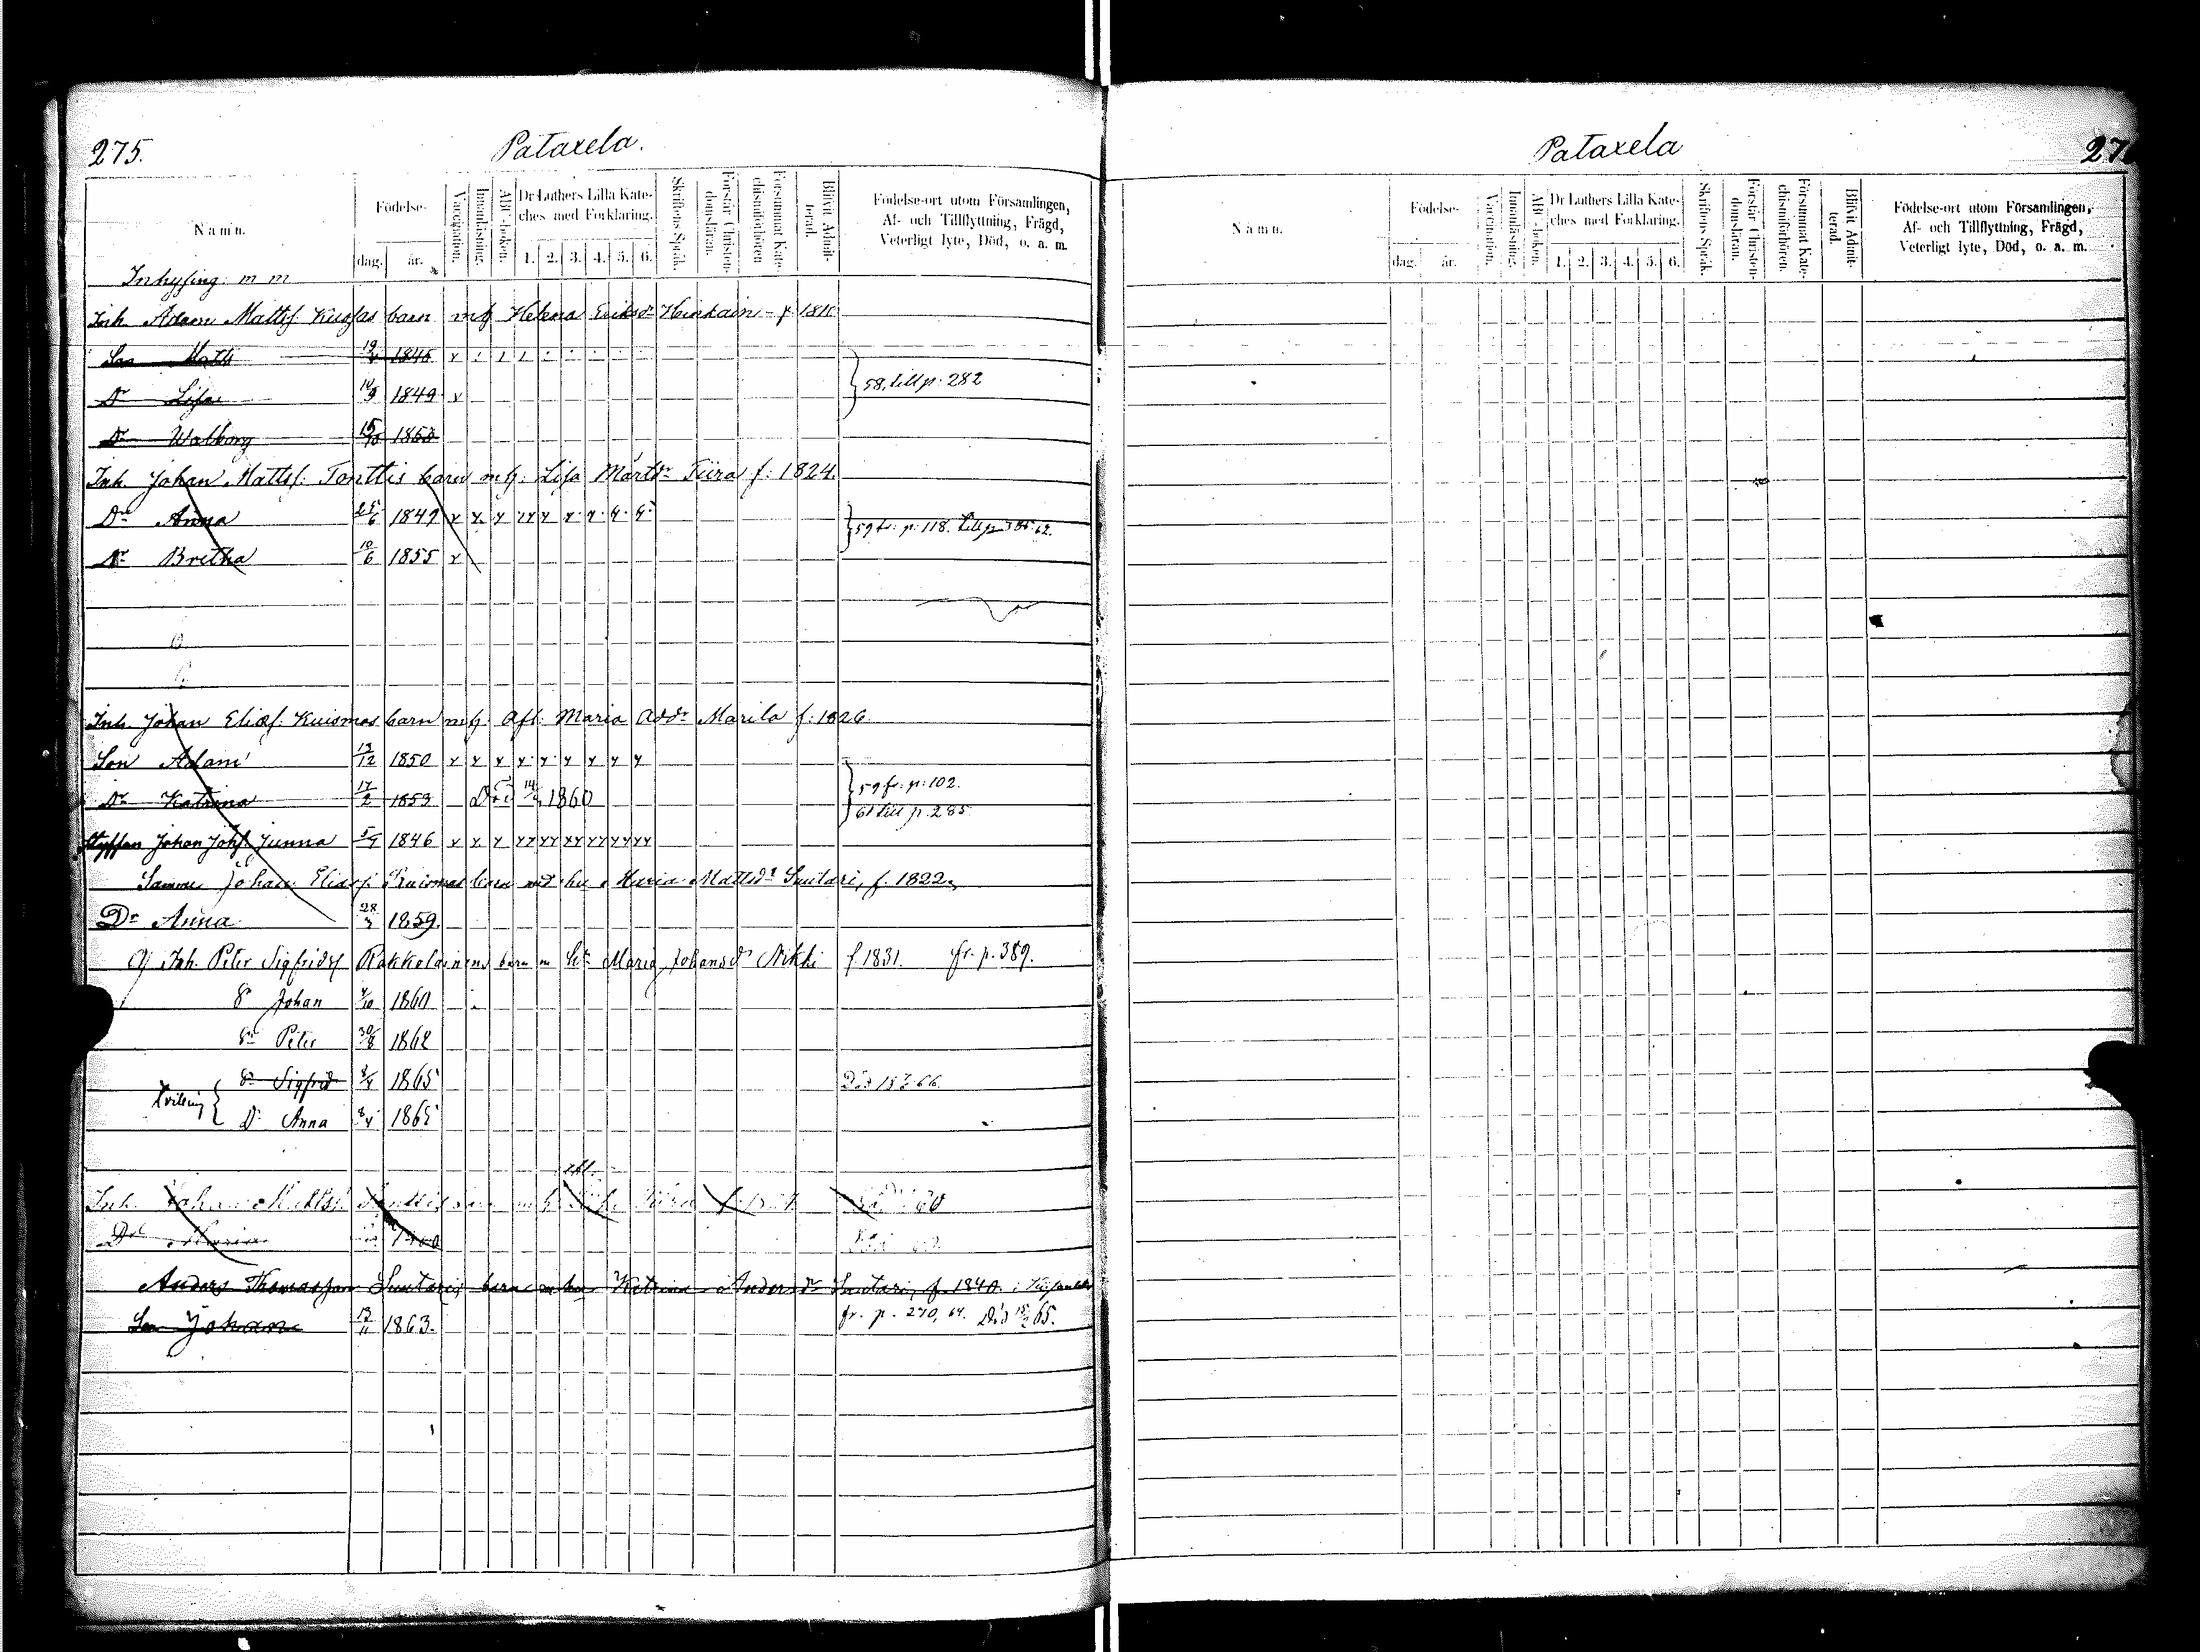 275.
Pataxela.
Namn.
Födelse-
dag. år.
Vaccination.
Innanläsning.
ABC-boken.
Dr Luthers Lilla Kate-
ches med Förklaring.
1. 2. 3. 4. 5. 6.
Skriftens Språk.
Förstår Christen-
domsläran.
Försummat Kate-
chismiförhören.
Blifvit Admit-
terad.
Födelse-ort utom Församlingen,
Af- och Tillflyttning, Frägd,
Veterligt lyte, Död, o. a. m.
Inhysing m m
Inh. Adam Matts. barn mh Helena Eriksdr
Son Matts 1846
58, till p. 282
Dr Lisa 10/9 1849 v
Dr Walborg 1853
Inh. Johan Matts. Tonttis barn mh. Lisa Märtdr Tiira f. 1824.
Dr Anna 25/6 1849
59 fr. p. 118.
Dr Bretha 10/6 1855 v
Inh. Johan Elias. Kuismas barn mh. Afl. Maria Addr Marila f. 1826
Son Adam 13/12 1850
59 fr. p. 102.
Dr Katrina 17/2 1859 Död 1860
61 till p. 285
Johan Johs. Junna 1846
Samme Johan Elias. Kuismas barn med hu Maria Mattsdr Suutari, f. 1822
Dr Anna 28/ 1859.
Inh. Peter Sigfrids Rakkolainens barn m h. Maria Johansdr Nikki f. 1831. fr. p. 389.
Sn Johan /10 1860
Sn Peter 30/8 1862
Sn Sigfrid 8/4 1865
Tvilling { Dr Anna 8/4 1865
Inh. Johan Matts. 60
Dr Maria
Anders Thomasson Suutaris barn m hu Katrina Andersdr Suutari, f. 1840
Son Johan /11 1863. fr. p. 270, 64. Död 65.
Pataxela
27
Namn.
Födelse-
dag. år.
Vaccination.
Innanläsning.
ABC-boken.
Dr Luthers Lilla Kate-
ches med Förklaring.
1. 2. 3. 4. 5. 6.
Skriftens Språk.
Förstår Christen-
domsläran.
Försummat Kate-
chismiförhören.
Blifvit Admit-
terad.
Födelse-ort utom Församlingen,
Af- och Tillflyttning, Frägd,
Veterligt lyte, Död, o. a. m.